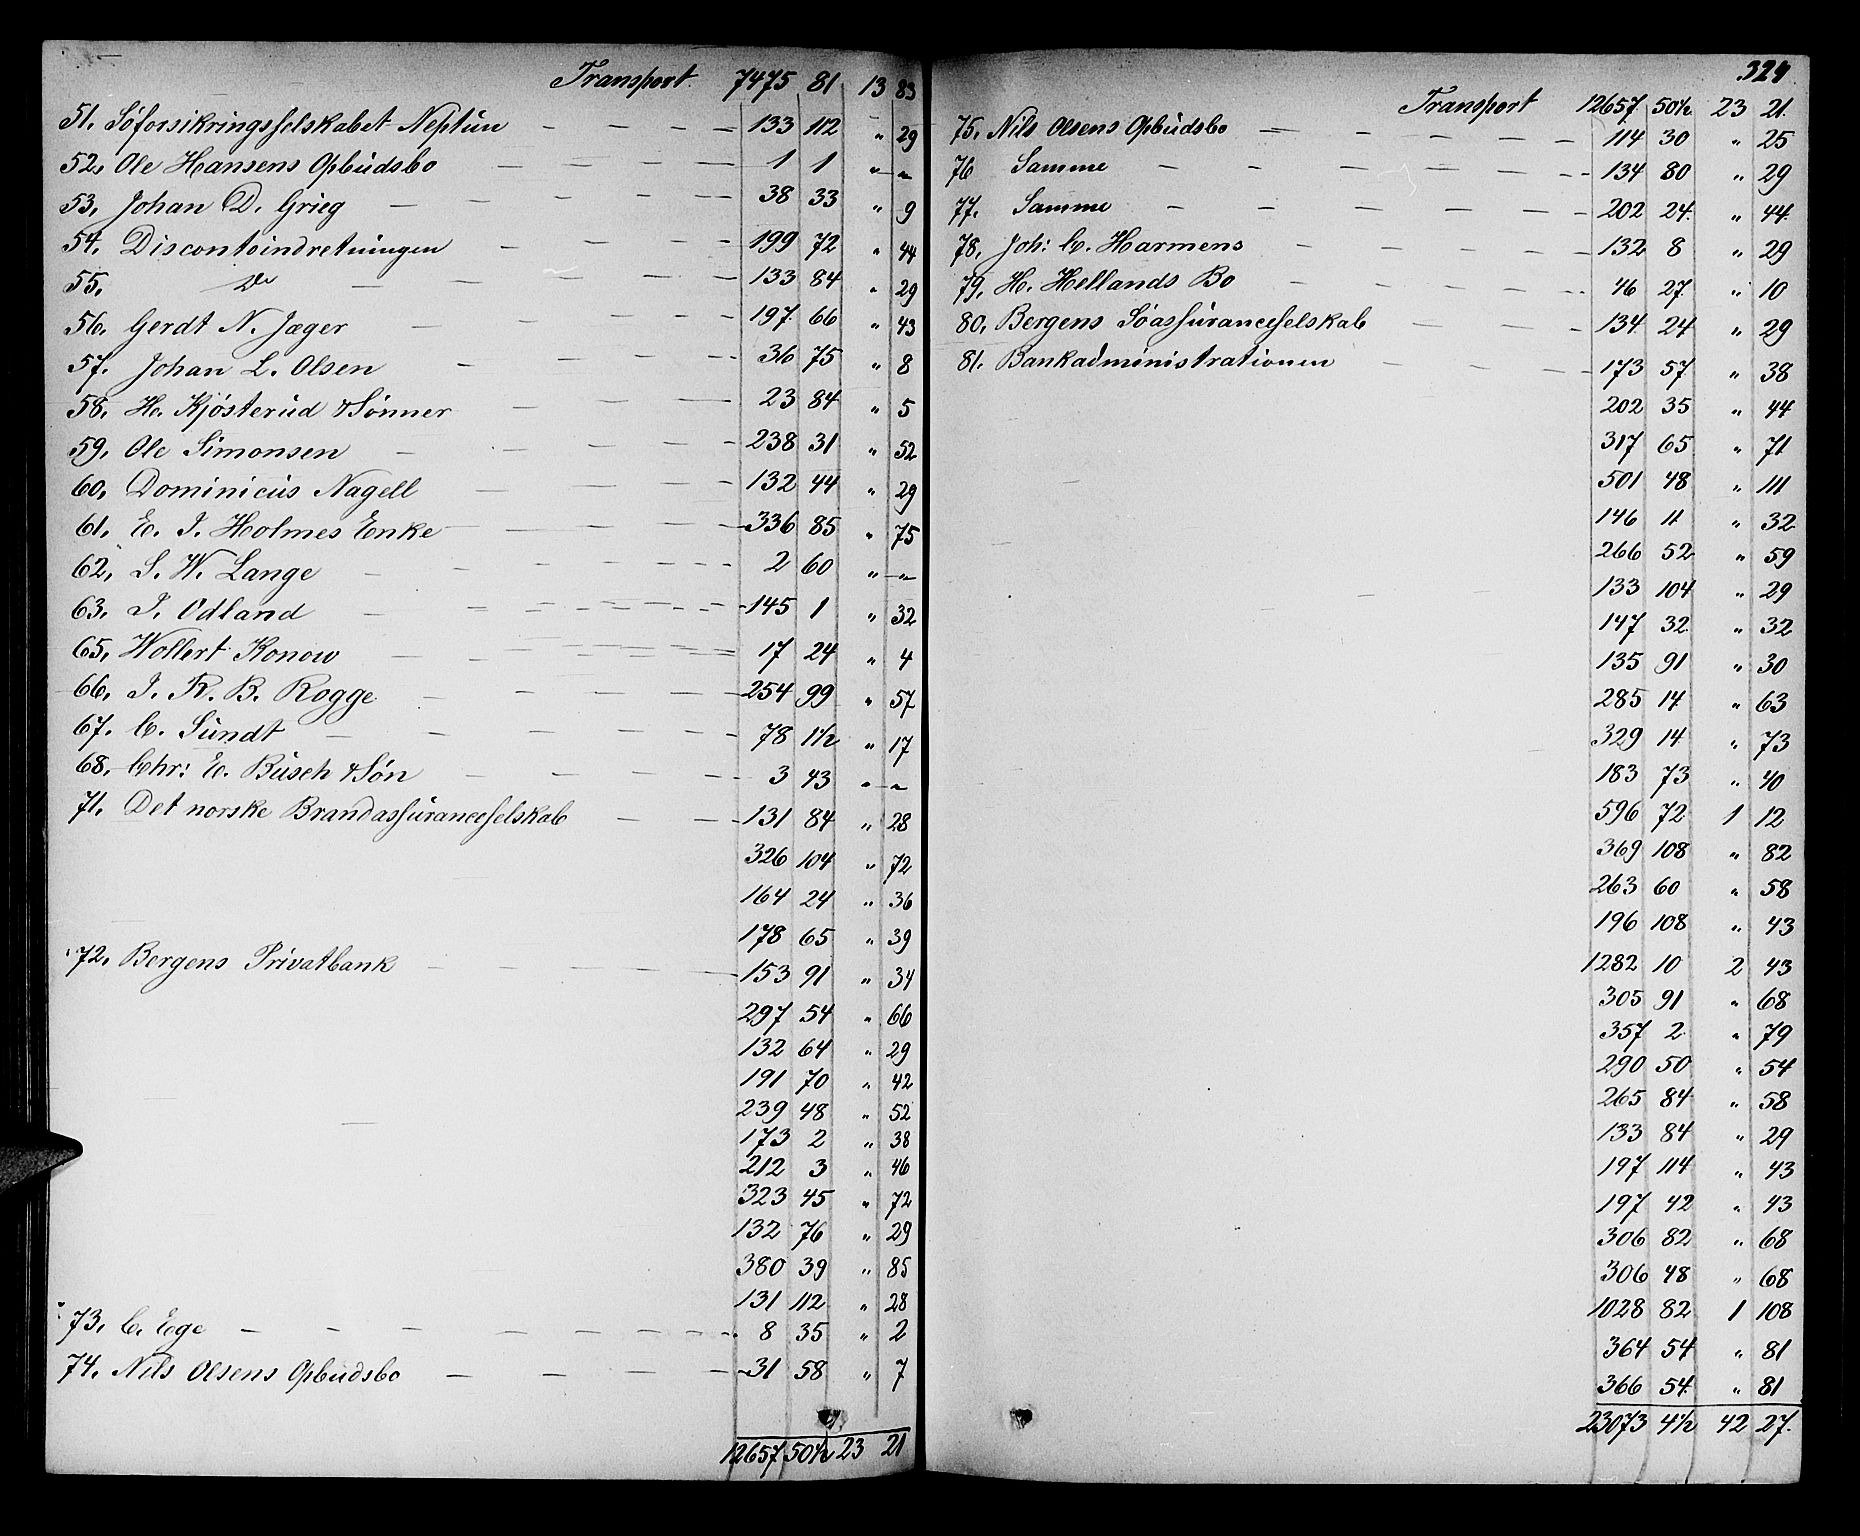 Transport 7475 81 13 83
51. Søforsikringsselskabet Neptun — — — — 133 112 " 29
52. Ole Hansens Opbudsbo — — — — 1 1 " "
53. Johan D. Grieg — — — — 38 33 " 9
54. Discontoindretningen — — — 199 72 " 44
55. Do — — — — 133 84 " 29
56. Gerdt N. Jæger — — — — 197 66 " 43
57. Johan L. Olsen — — — — 36 75 " 8
58. H. Kjøsterud & Sønner — — — 23 84 " 5
59. Ole Simonsen — — — — 238 31 " 52
60. Dominicus Nagell — — — — 132 44 " 29
61. E. I. Holmes Enke — — — — 336 85 " 75
62. S. W. Lange — — — — 2 60 " "
63. I. Odland — — — — 145 1 " 32
65. Wollert Konow — — — — 17 24 " 4
66. I. R. B. Rogge — — — — 254 99 " 57
67. C. Sundt — — — — 78 1½ " 17
68. Chr: E. Busch & Søn — — — — 3 43 " "
71. Det norske Brandassuranceselskab — — — 131 84 " 28
326 104 " 72
164 24 " 36
178 65 " 39
72. Bergens Privatbank — — — — 153 91 " 34
297 54 " 66
132 64 " 29
191 70 " 42
239 48 " 52
173 2 " 38
212 3 " 46
323 45 " 72
132 76 " 29
380 39 " 85
131 112 " 28
73. C. Ege — — — — 8 35 " 2
74. Nils Olsens Opbudsbo — — — — 31 58 " 7
12657 50½ 23 21
324
Transport 12657 50½ 23 21.
75. Nils Olsens Opbudsbo — — — — 114 30 " 25
76 Samme — — — — 134 80 " 29
77. Samme — — — — 202 24 " 44
78. Joh: C. Harmens — — — — 132 8 " 29
79. H. Hellands Bo — — — — 46 27 " 10
80. Bergens Søassuranceselskab — — — 134 24 " 29
81. Bankadministrationen — — — 173 57 " 38
202 35 " 44
317 65 " 71
501 48 " 111
146 11 " 32
266 52 " 59
133 104 " 29
147 32 " 32
135 91 " 30
285 14 " 63
329 14 " 73
183 73 " 40
596 72 1 12
369 108 " 82
263 60 " 58
196 108 " 43
1282 10 2 43
305 91 " 68
357 2 " 79
290 50 " 54
265 84 " 58
133 84 " 29
197 114 " 43
197 42 " 43
306 82 " 68
306 48 " 68
1028 82 1 108
364 54 " 81
366 54 " 81
23073 4½ 42 27.